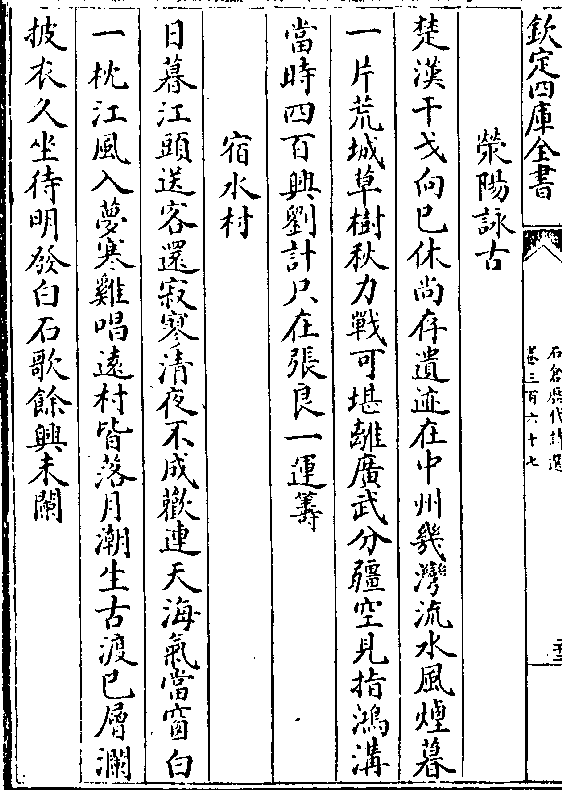 欽定四庫全書
石倉歷代詩選
卷三百六十七
滎陽詠古
楚漢干戈向已休尚存遺迹在中州幾灣流水風煙暮
一片荒城草樹秋力戰可堪離廣武分疆空見指鴻溝
當時四百興劉計只在張良一運籌
宿水村
日暮江頭送客還寂寥清夜不成歡連天海氣當窗白
一枕江風入夢寒雞唱遠村皆落月潮生古渡已層瀾
披衣久坐待明發白石歌餘興未闌